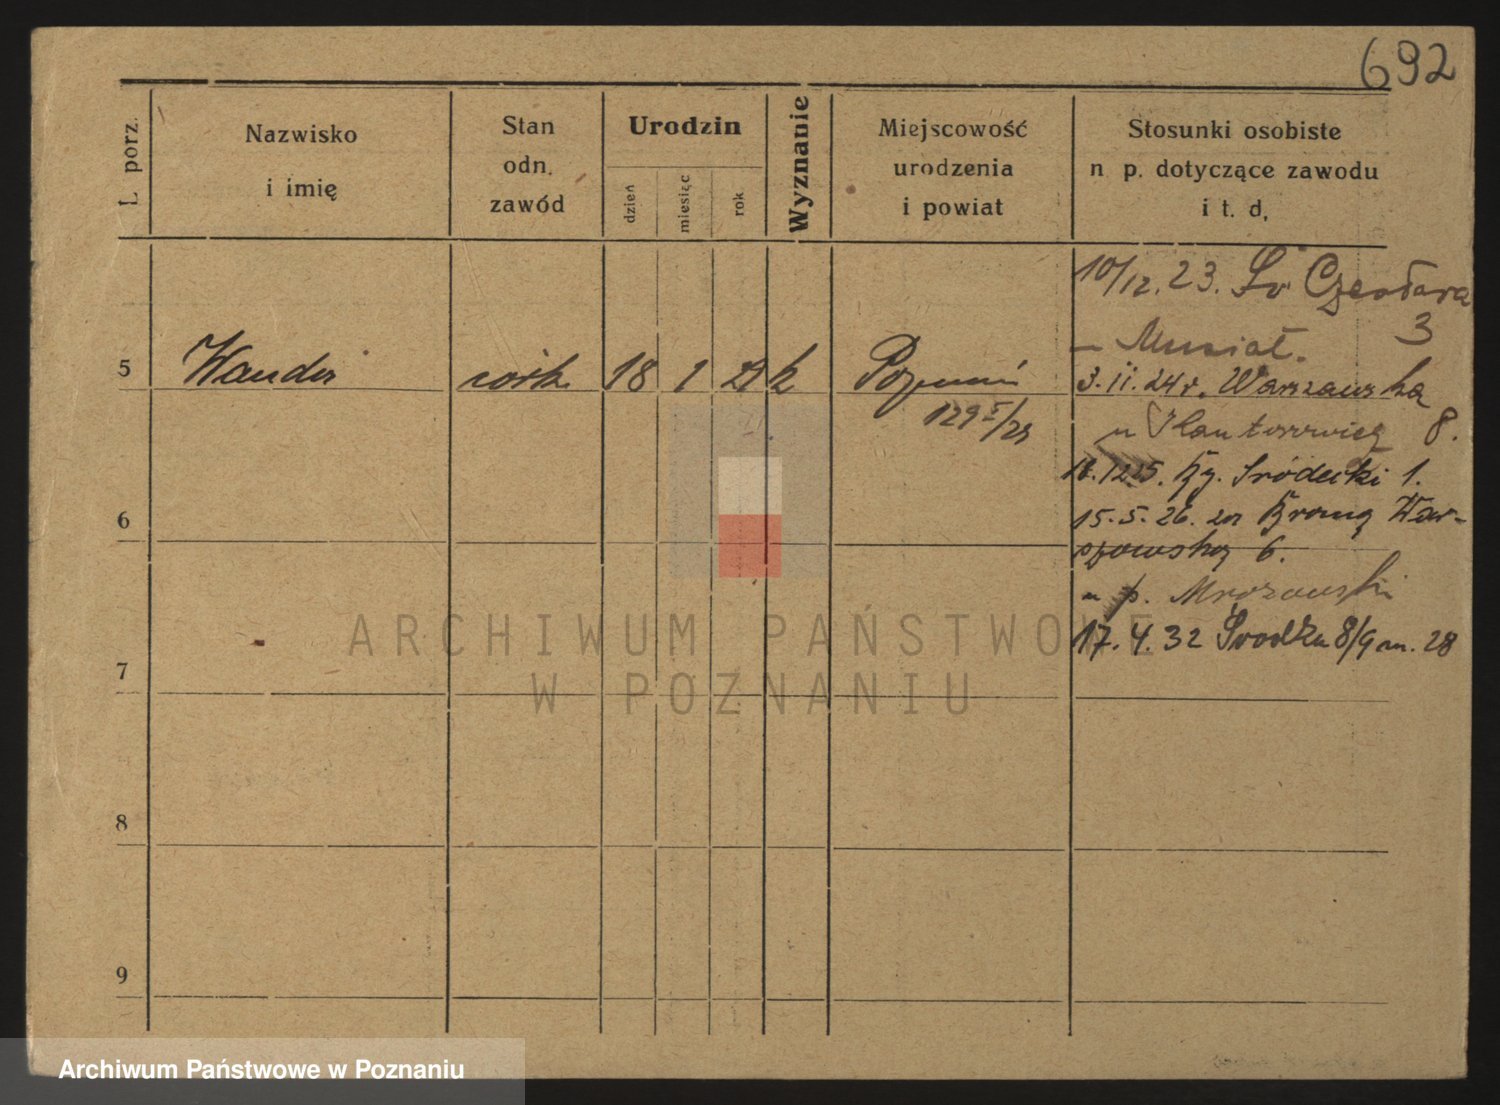 692
L. porz.
Nazwisko
i imię
Stan
odn.
zawód
Urodzin
dzień
miesiąc
rok
Wyznanie
Miejscowość
urodzenia
i powiat
Stosunki osobiste
n p. dotyczące zawodu
i t. d.
10/12. 23. Św Czesława
3
Musiał.
5 Wanda córk 18 1 k Poznań
3. II. 24 r. Warszawska
129 I/23
u 8.
25. Ry. Śródecki 1.
6
15. 5. 26. za Bramą War-
szawską 6.
u p. Mrozowski
17. 4. 32 Środka 8/9 m. 28
7
8
9
ARCHIWUM PAŃSTWOWE
W POZNANIU
Archiwum Państwowe w Poznaniu